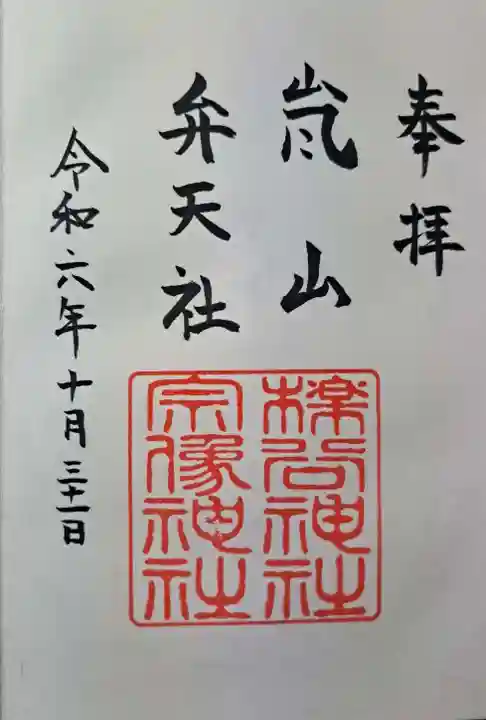 奉拝
嵐山
弁天社
櫟谷神社
宗像神社
令和六年十月三十一日